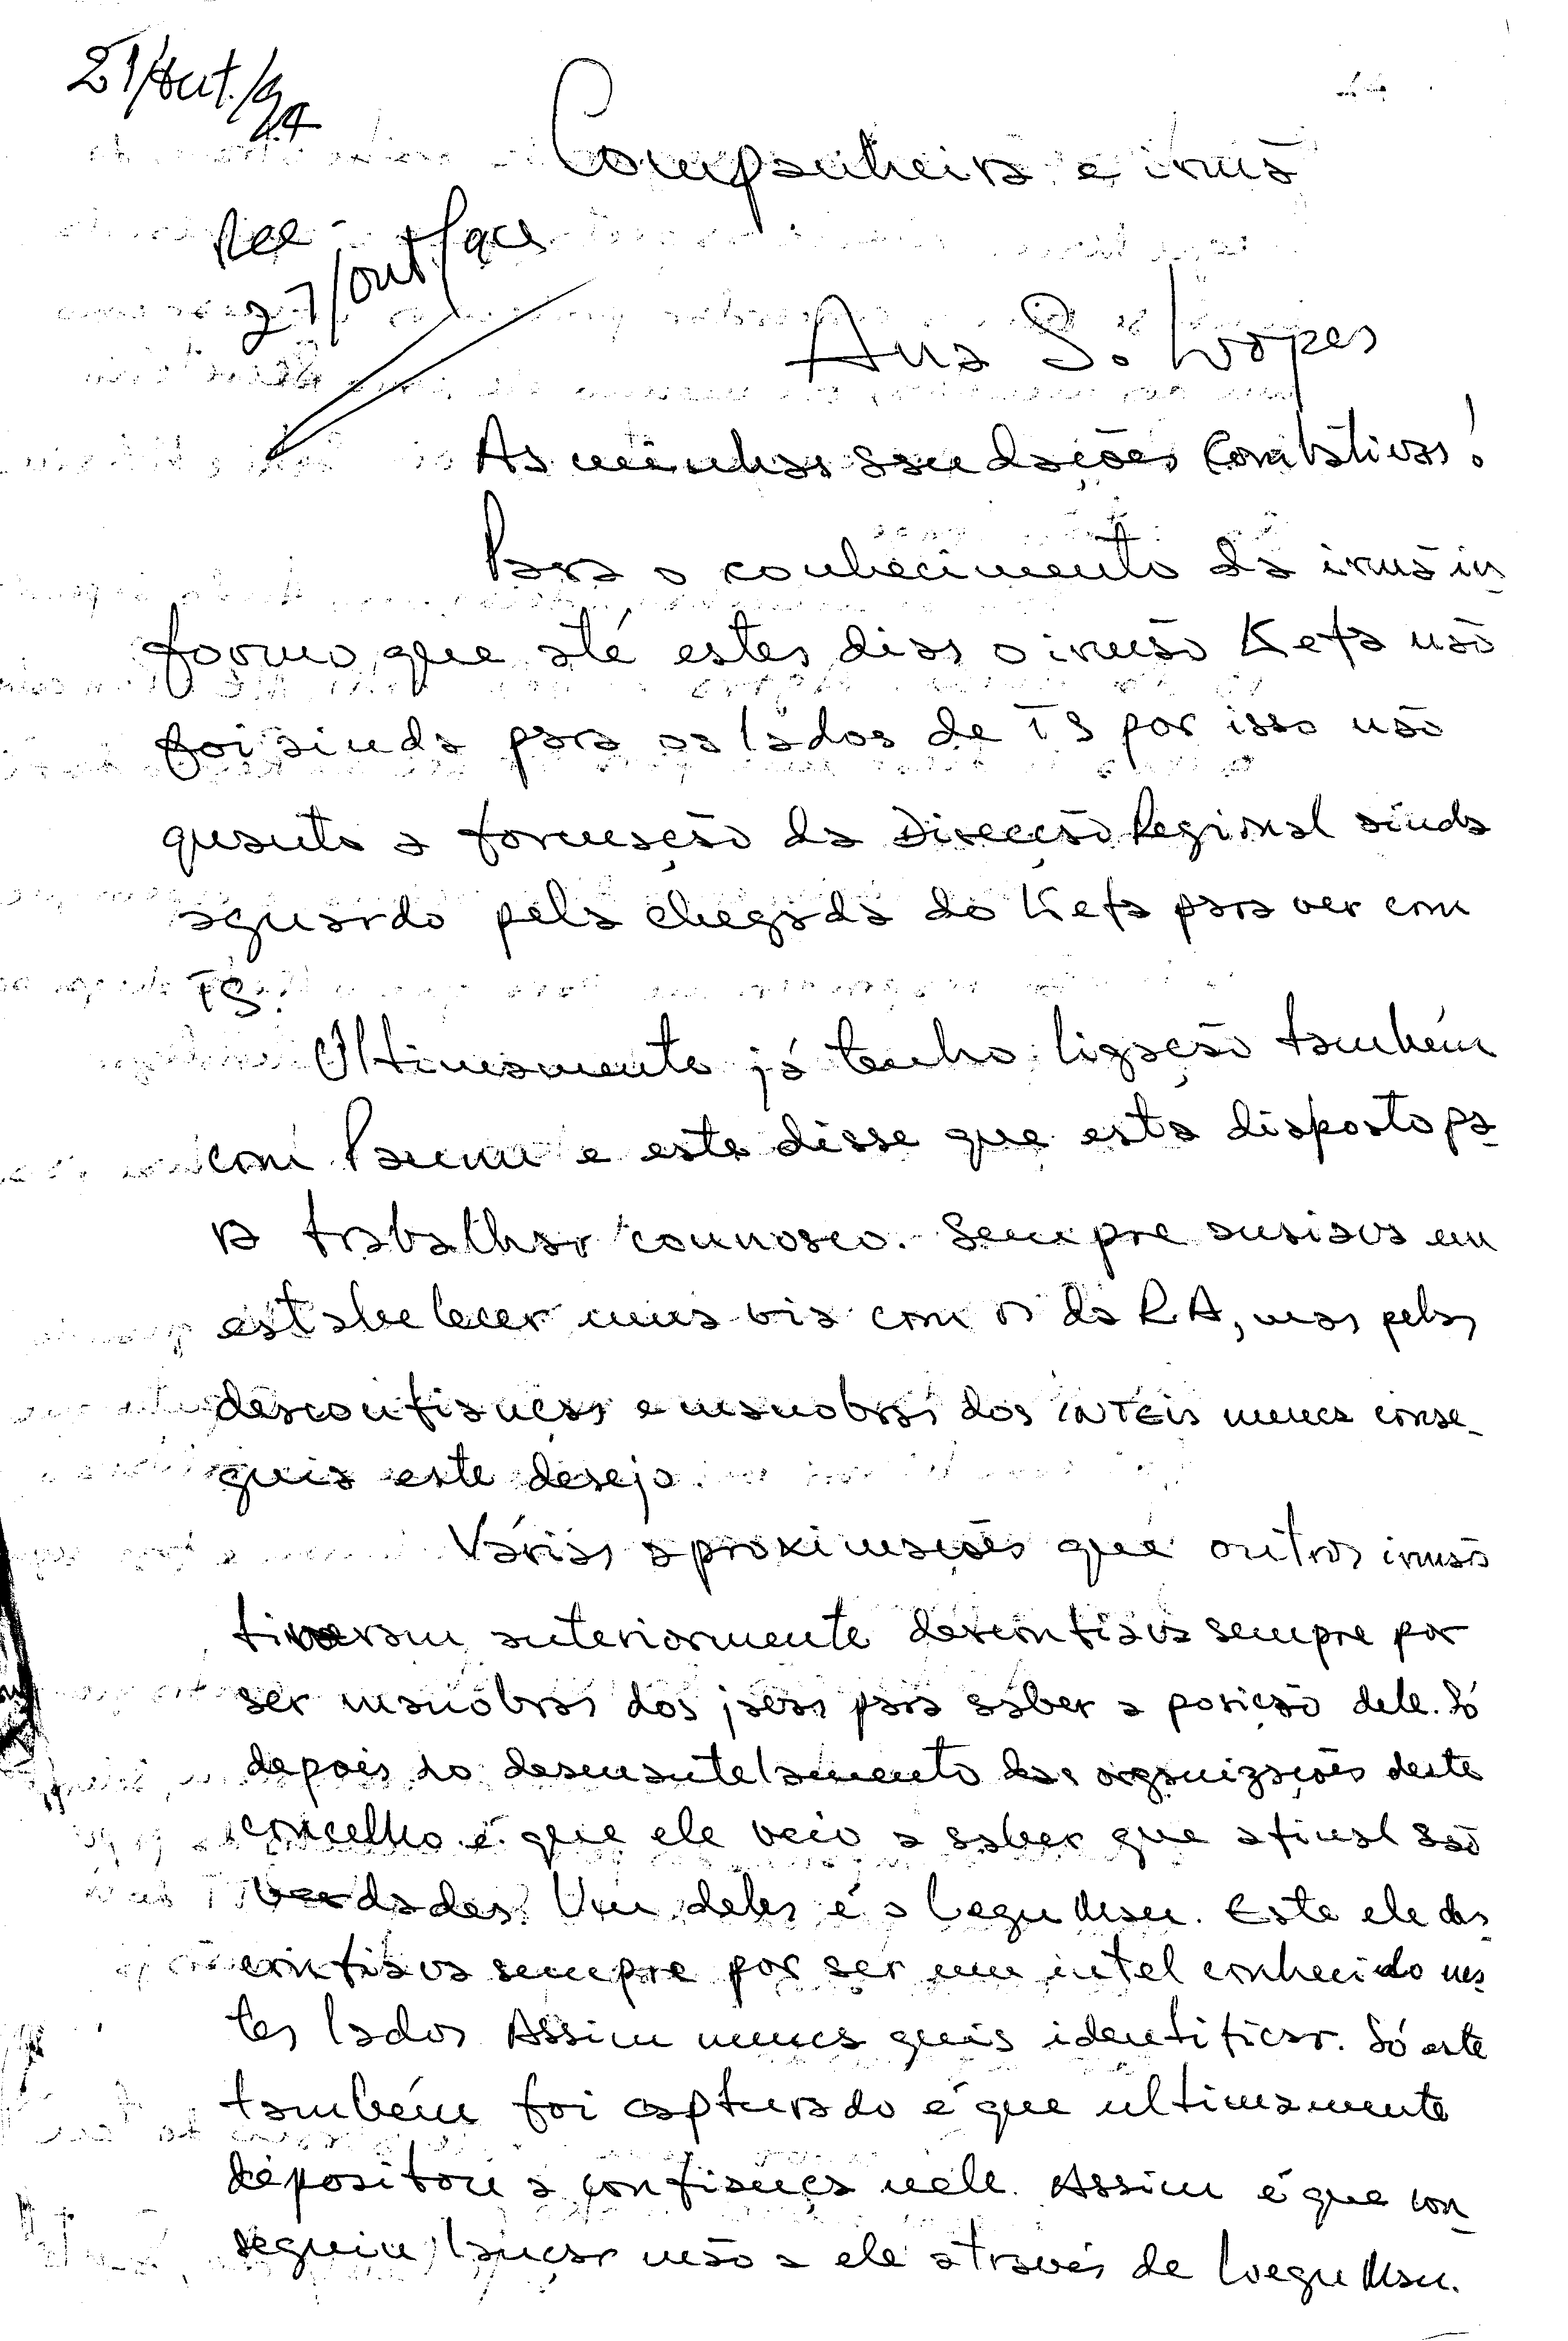 21/Out./94
Companheira e irmã
Rec
27/Out/94
Ana S. Lopes
As minhas saudações combativas!
Para o conhecimento da irmã in_
formo que até estes dias o irmão Kefa não
foi ainda para os lados de TS por isso não
quanto a formação da Direcção Regional ainda
aguardo pela chegada do Kefa para ver com
TS.
Ultimamente já tenho ligação também
com e este disse que esta disposto pa_
ra trabalhar connosco. Sempre ansiava em
estabelecer uma via com os da RA, mas pelas
desconfianças e manobras dos INTEIS nunca conse_
guia este desejo.
Várias aproximações que outros irmãos
tiveram anteriormente desconfiava sempre por
ser manobras dos para saber a posição dele. Só
depois do desmantelamento das organizações deste
concelho é que ele veio a saber que afinal são
verdades. Um deles é o Legu Mau. Este ele des_
confiava sempre por ser um intel conhecido nes_
tes lados Assim nunca quis identificar. Só este
também foi capturado é que ultimamente
depositou a confiança nele. Assim é que con_
seguiu lançar mão a ele através de Loegu Mau.